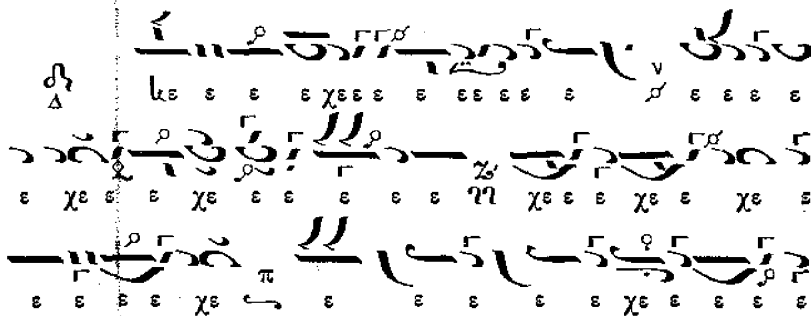 κε ε ε ε χε ε ε ε ε ε ε ε ε ε ε ε ε
ε χε ε ε χε ε ε ε ε ε χε ε ε χε ε χε ε
ε ε ε ε χε ε ε ε ε ε χε ε ε ε ε ε